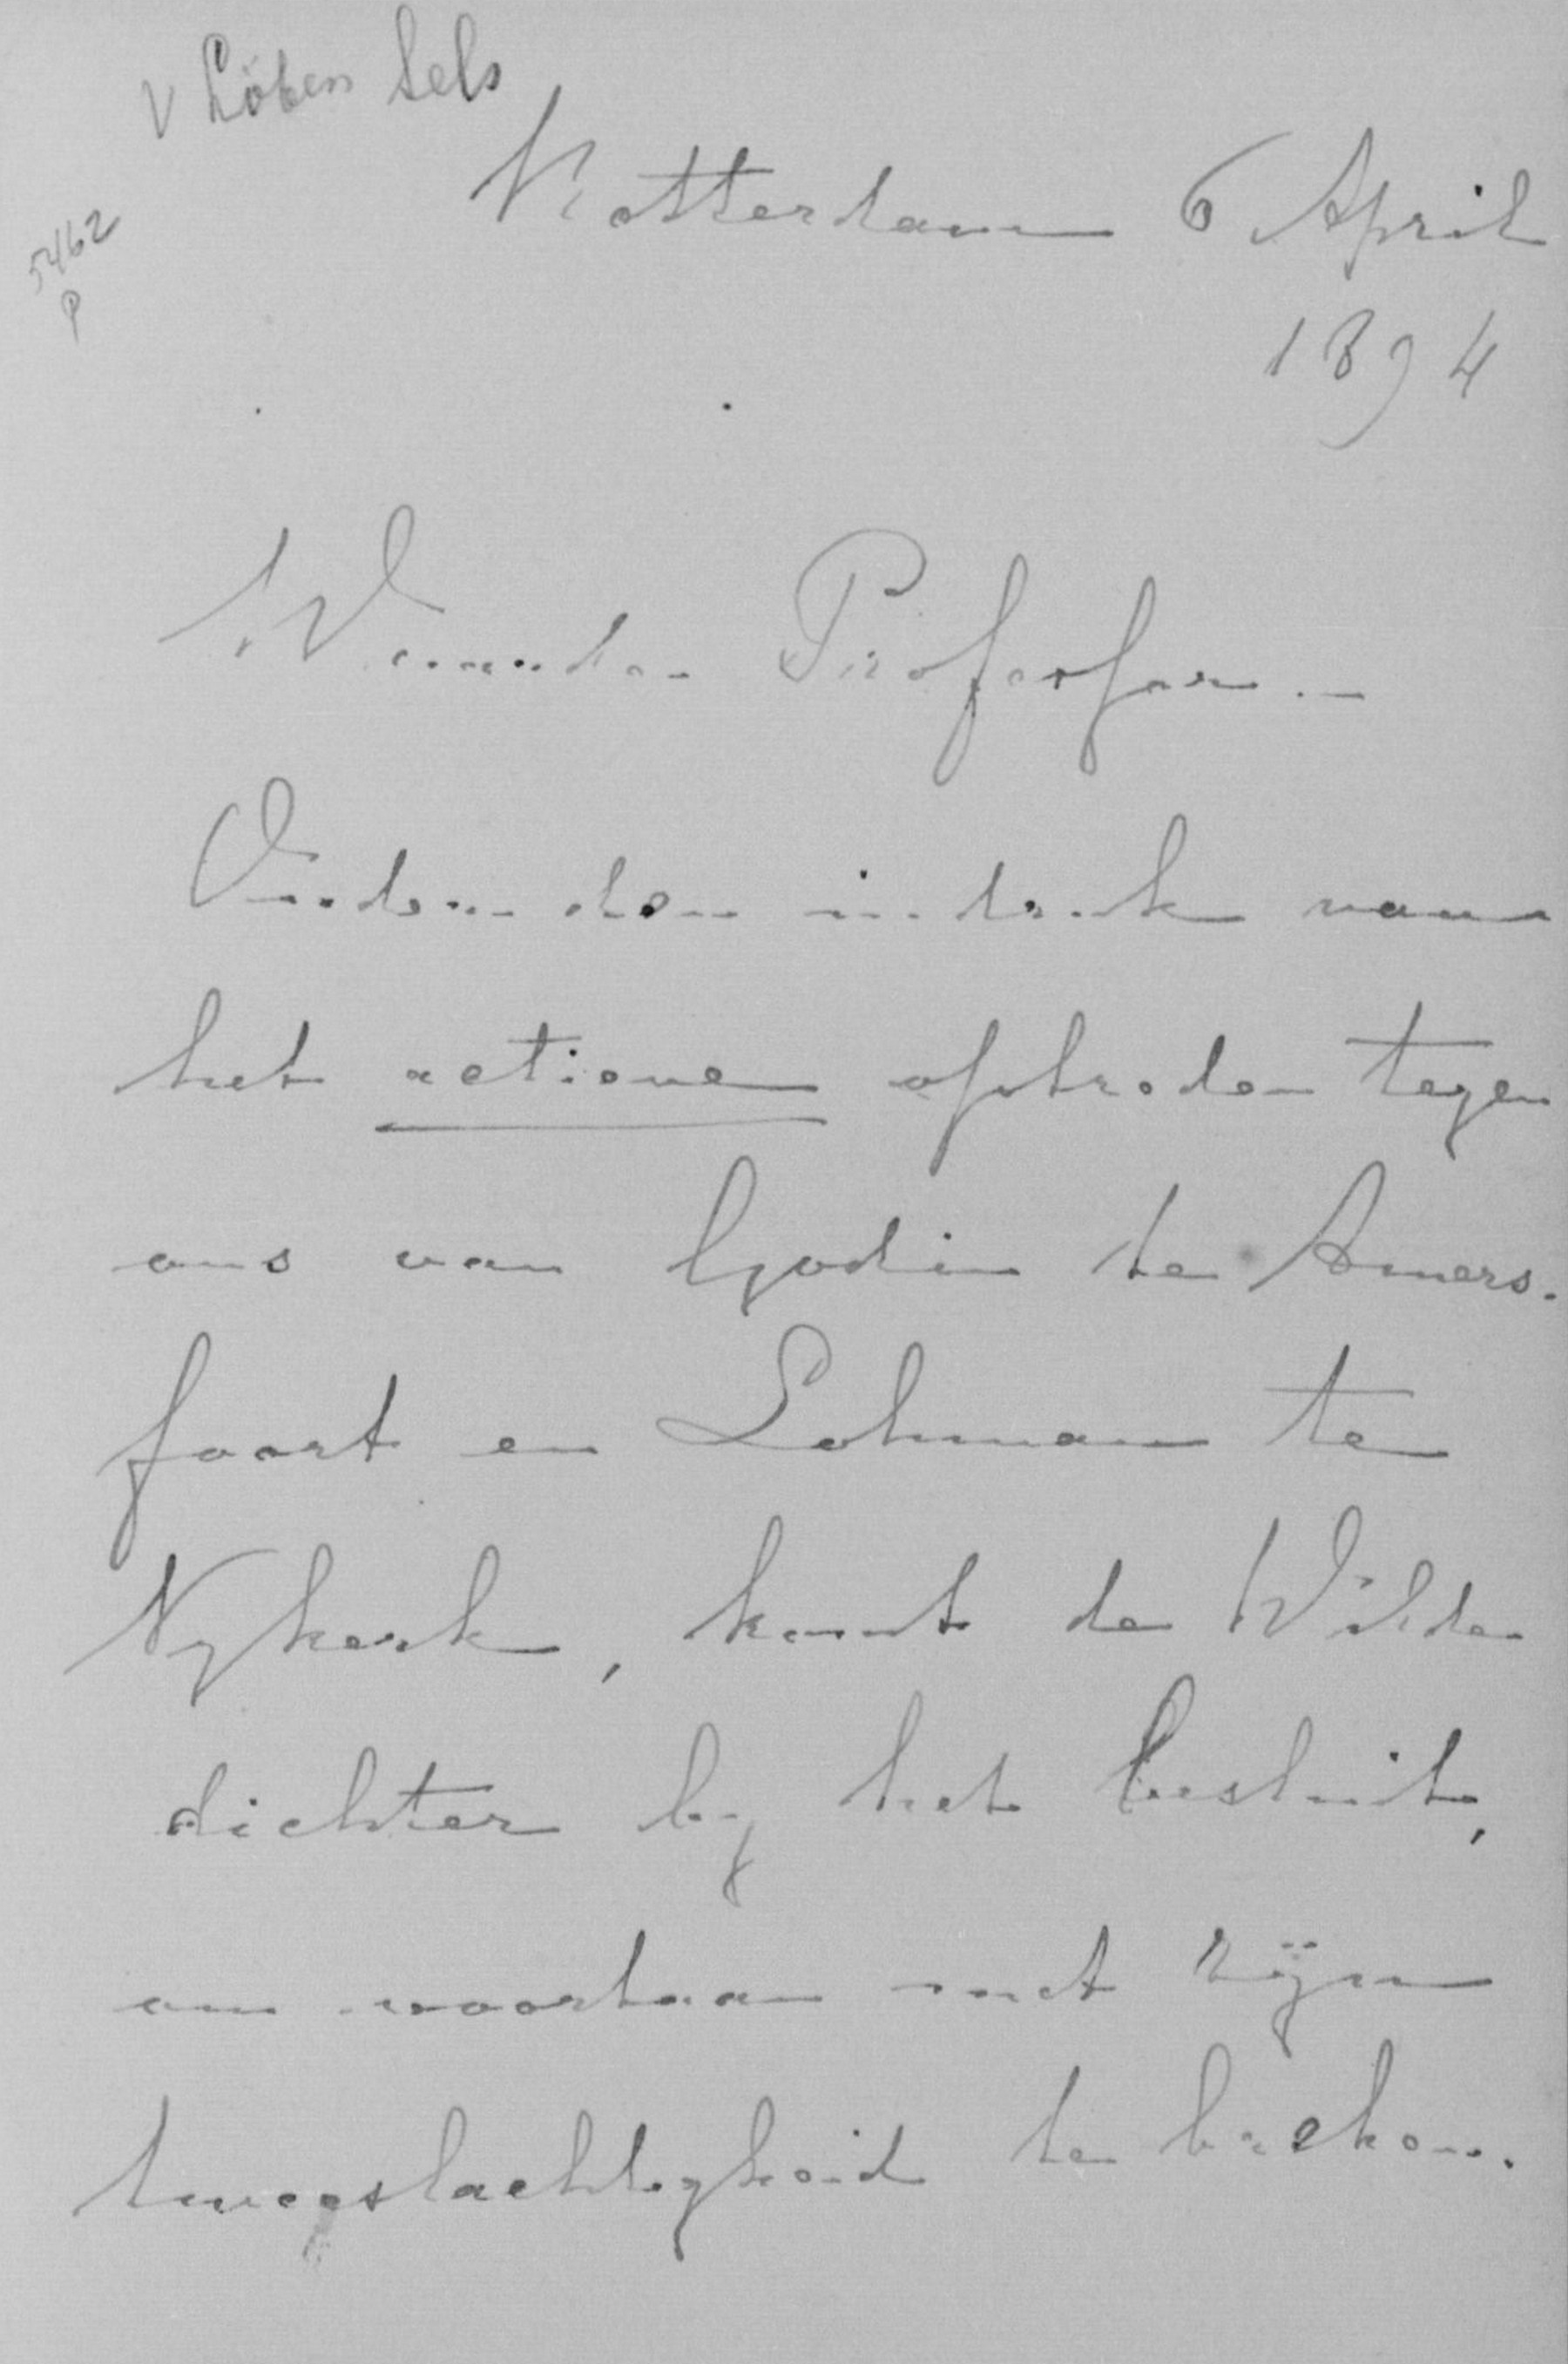 v Löben Sels
Rotterdam 6 April
5462
P
1894
Waarde Professor. –
Onder den indruk van
het actieve optreden tegen
ons van Godin te Amers-
foort en Lohman te
Nykerk, komt de Wilde
dichter by het besluit,
om voortaan met zijn
tweeslachtigheid te breken.